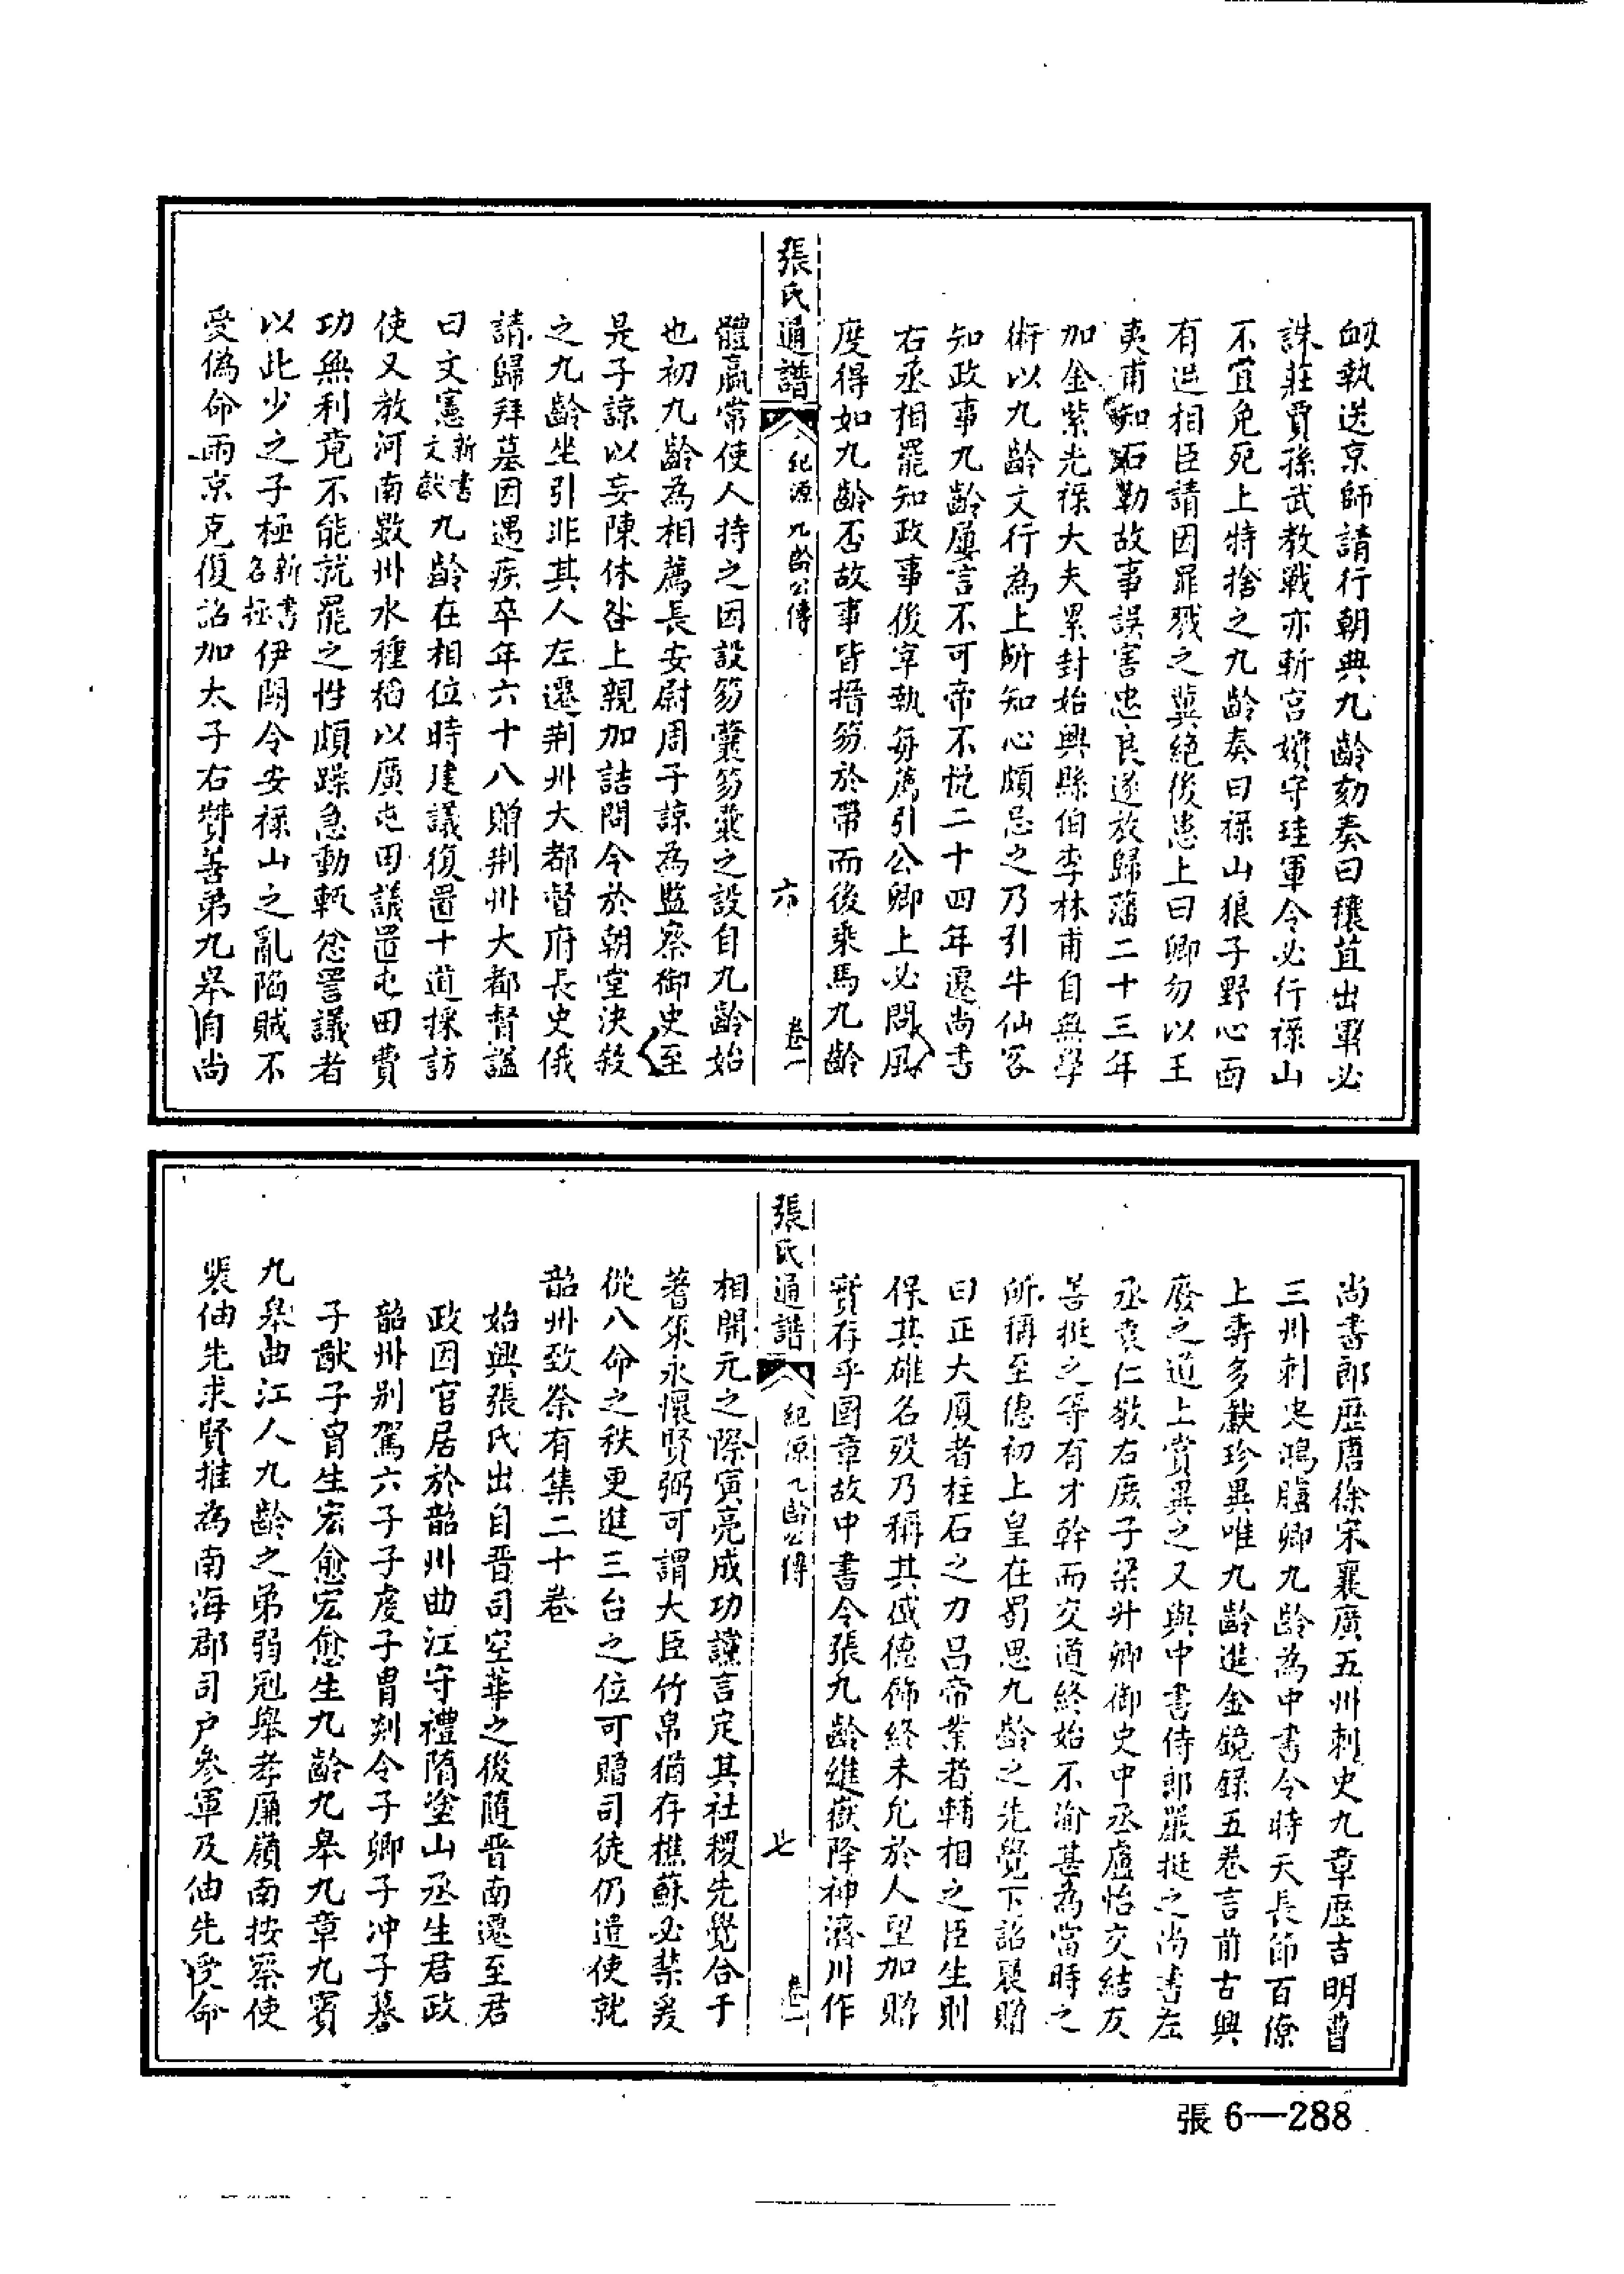 衂執送京師請行朝典九齡劾奏曰穰苴出軍必
誅莊賈孫武教戰亦斬宮嬪守珪軍令必行祿山
不宜免死上特捨之九齡奏曰祿山狼子野心面
有逆相臣請因罪戮之冀絕後患上曰卿勿以王
夷甫知石勒故事誤害忠良遂放歸藩二十三年
加金紫光祿大夫累封始興縣伯李林甫自無學
術以九齡文行為上所知心頗忌之乃引牛仙客
知政事九齡屢言不可帝不悅二十四年遷尚書
右丞相罷知政事後宰執每薦引公卿上必問風
度得如九齡否故事皆搢笏於帶而後乘馬九齡
張氏通譜 紀源 九齡公傳 六 卷一
體羸常使人持之因設笏囊笏囊之設自九齡始
也初九齡為相薦長安尉周子諒為監察御史至
是子諒以妄陳休咎上親加詰問令於朝堂決殺
之九齡坐引非其人左遷荆州大都督府長史俄
請歸拜墓因遇疾卒年六十八贈荆州大都督諡
曰文憲新書文獻九齡在相位時建議復置十道採訪
使又教河南數州水種稻以廣屯田議置屯田費
功無利竟不能就罷之性頗躁急動輒忿詈議者
以此少之子極新書名拯伊闕令安祿山之亂陷賊不
受偽命兩京克復詔加太子右贊善弟九皋自尚
尚書郎歷唐徐宋襄廣五州刺史九章歷吉明曹
三州刺史鴻臚卿九齡為中書令時天長節百僚
上壽多獻珍異唯九齡進金鏡錄五卷言前古興
廢之道上賞異之又與中書侍郎嚴挺之尚書左
丞袁仁敬右庶子梁升卿御史中丞盧怡交結友
善挺之等有才幹而交道終始不渝甚為當時之
所稱至德初上皇在蜀思九齡之先覺下詔褒贈
曰正大厦者柱石之力昌帝業者輔相之臣生則
保其雄名歿乃稱其盛德飾終未允於人望加贈
實存乎國章故中書令張九齡維嶽降神濟川作
張氏通譜 紀源 九齡公傳 七 卷一
相開元之際寅亮成功讜言定其社稷先覺合于
蓍策永懷賢弼可謂大臣竹帛猶存樵蘇必禁爰
從八命之秩更進三台之位可贈司徒仍遣使就
韶州致祭有集二十卷
始興張氏出自晋司空華之後隨晋南遷至君
政因官居於韶州曲江守禮隋塗山丞生君政
韶州别駕六子子虔子胄剡令子卿子冲子謩
子猷子胄生宏愈宏愈生九齡九皋九章九賓
九皋曲江人九齡之弟弱冠舉孝廉嶺南按察使
裴伷先求賢推為南海郡司户參軍及伷先受命
張 6—288